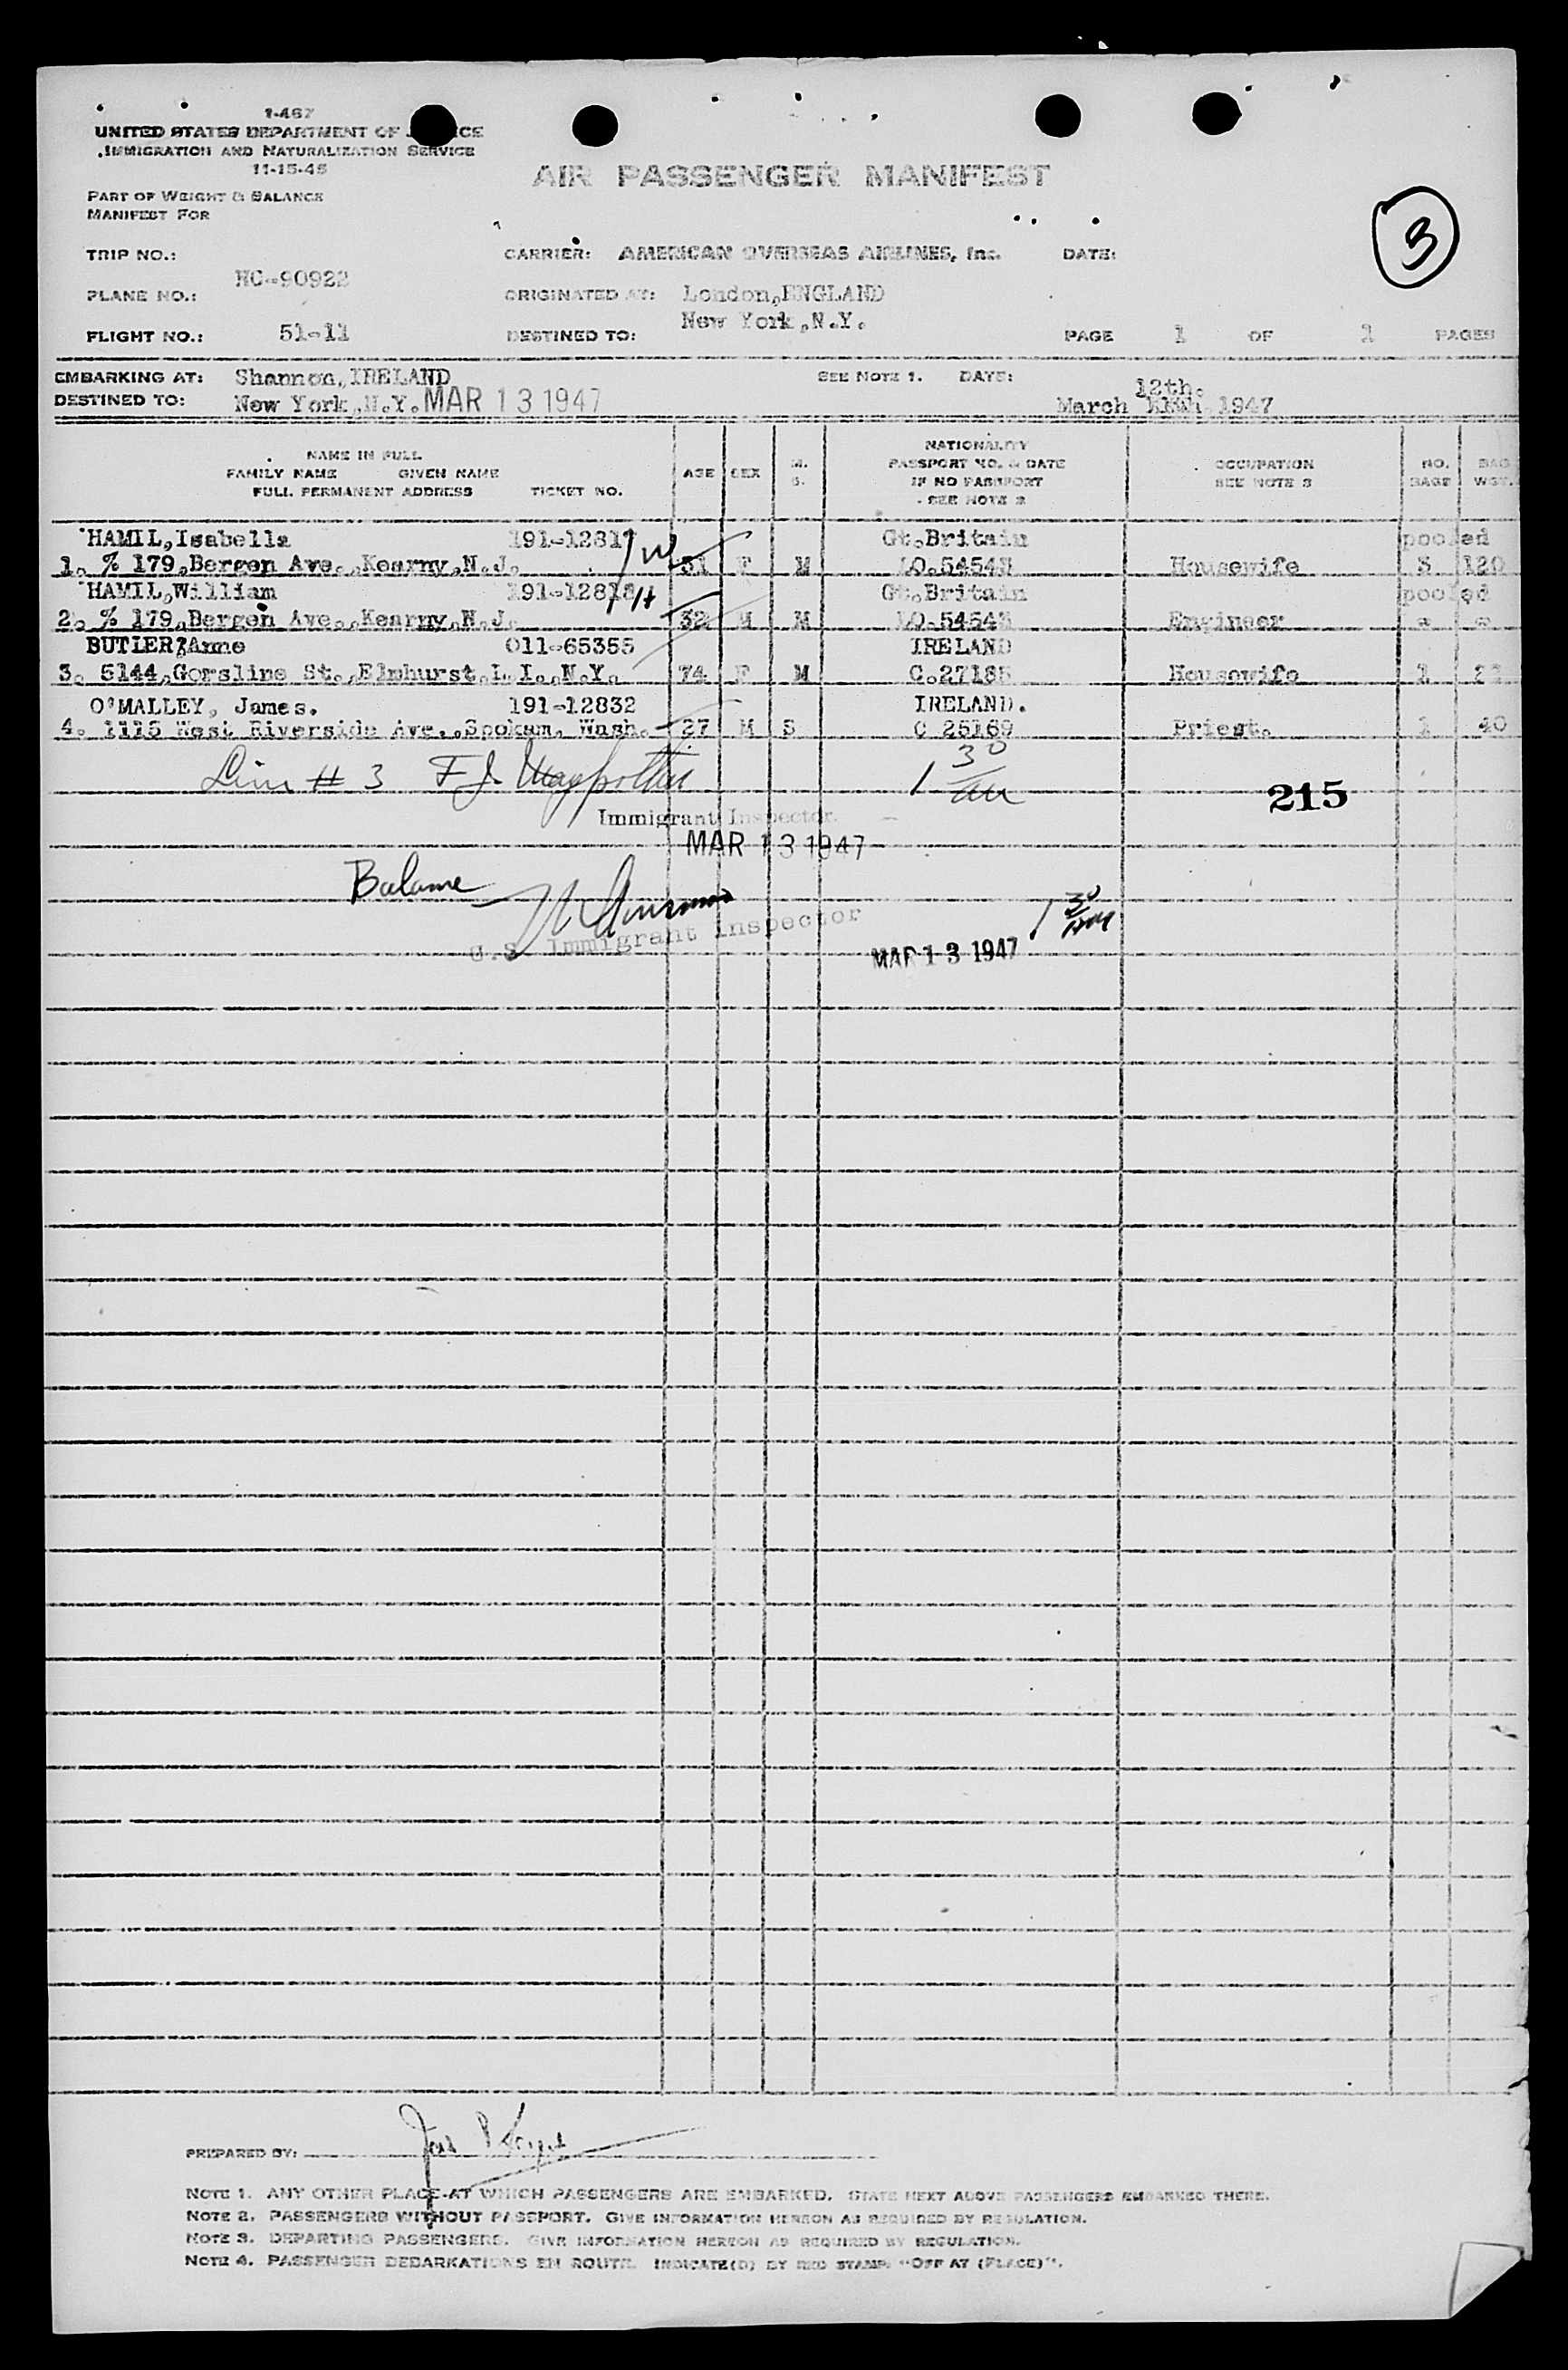 1-467
UNITED STATES DEPARTMENT OF J   ICE
IMMIGRATION AND NATURALIZATION SERVICE
11-15-45
AIR PASSENGER MANIFEST
PART OF WEIGHT & BALANCE
MANIFEST FOR
3
TRIP NO.:
CARRIER: AMERICAN OVERSEAS AIRLINES, Inc. DATE:
NC-90922
PLANE NO.:
ORIGINATED AT: London,ENGLAND
FLIGHT NO.: 51-11 DESTINED TO: New York,N.Y. PAGE 1 OF 1 PAGES
EMBARKING AT: Shannon,IRELAND SEE NOTE 1. DATE: 12th.
DESTINED TO: New York,N.Y. MAR 13 1947 March 1947
NAME IN FULL
FAMILY NAME GIVEN NAME
FULL PERMANENT ADDRESS TICKET NO.
AGE SEX M. S.
NATIONALITY
PASSPORT NO. & DATE
IF NO PASSPORT
SEE NOTE 2
OCCUPATION
SEE NOTE 3
NO. BAGS
BAG WGT.
HAMIL,Isabella 191-12817 Gt.Britain pooled
1. % 179,Bergen Ave.,Kearny,N.J. 31 F M LO.54543 Housewife 3 120
HAMIL,William 191-12818 Gt.Britain pooled
2. % 179,Bergen Ave.,Kearny,N.J. 32 M M LO.54543 Engineer
BUTLER,Anne 011-65355 IRELAND
3. 5144,Gorsline St.,Elmhurst,L.I.,N.Y. 74 F M C.27185 Housewife 1
O'MALLEY, James. 191-12832 IRELAND.
4. 1115 West Riverside Ave.,Spokan, Wash. 27 M S C 25169 Priest. 1 40
Line # 3 F J 1 30 AM
215
Immigrant Inspector.
MAR 13 1947
Balance
U.S. Immigrant Inspector
1 30 AM
MAR 13 1947
PREPARED BY:
NOTE 1. ANY OTHER PLACE AT WHICH PASSENGERS ARE EMBARKED. STATE NEXT ABOVE PASSENGERS EMBARKED THERE.
NOTE 2. PASSENGERS WITHOUT PASSPORT. GIVE INFORMATION HEREON AS REQUIRED BY REGULATION.
NOTE 3. DEPARTING PASSENGERS. GIVE INFORMATION HEREON AS REQUIRED BY REGULATION.
NOTE 4. PASSENGER DEBARKATIONS EN ROUTE. INDICATE(D) BY RED STAMP. "OFF AT (PLACE)".